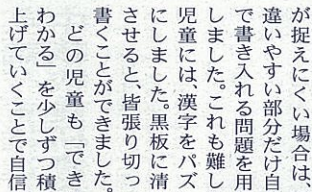 が捉えにくい場合は、
違いやすい部分だけ自
で書き入れる問題を用
しました。これも難し
児童には、漢字をパズ
にしました。黒板に清
させると、皆張り切っ
書くことができました。
どの児童も「でき
わかる」を少しずつ積
上げていくことで自信